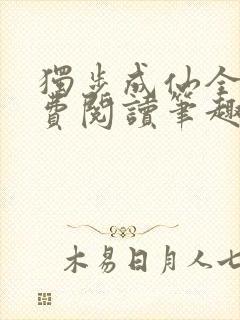 獨步成仙全
費閱讀筆趣
木易日月人七